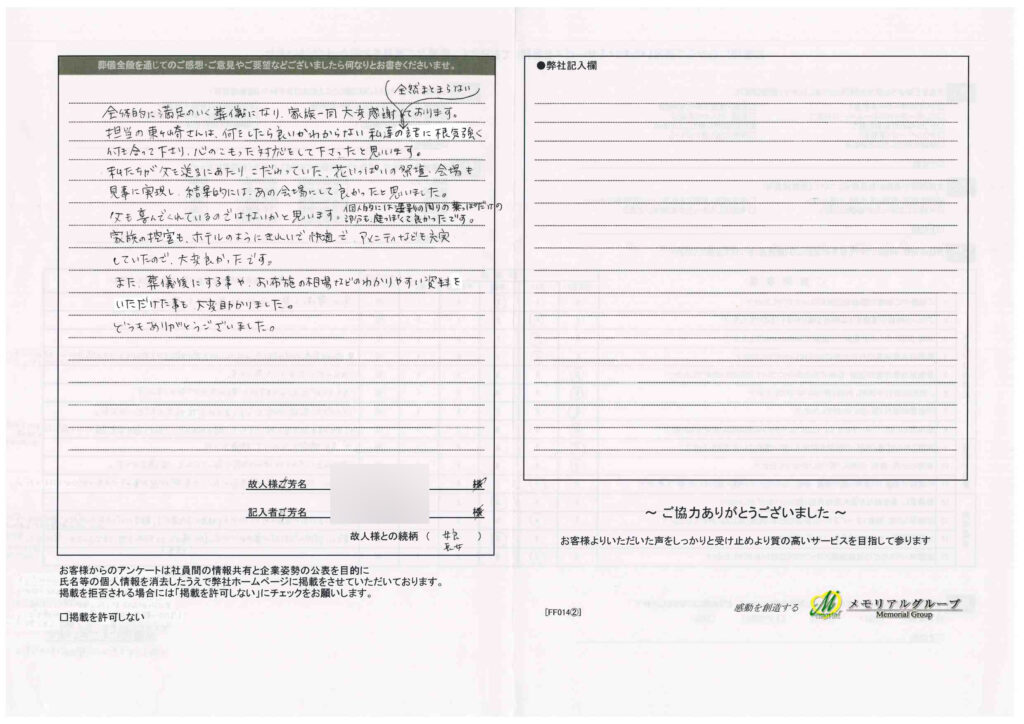 葬儀全般を通じてのご感想・ご意見やご要望などございましたら何なりとお書きくださいませ。
全然まとまらない
全体的に満足のいく葬儀になり、家族一同大変感謝しております。
担当の東ヶ崎さんは、何をしたら良いかわからない私達の話に根気強く
付き合って下さり、心のこもった対応をして下さったと思います。
私たちが父を送るにあたりこだわっていた、花いっぱいの祭壇・会場も
見事に実現し、結果的には、あの会場にして良かったと思いました。
父も喜んでくれているのではないかと思います。
個人的には還影の周りの葉っぱだけの
部分も庭っぽくて良かったです。
家族の控室も、ホテルのようにきれいで快適で、アメニティなども充実
していたので、大変良かったです。
また、葬儀後にする事や、お布施の相場などのわかりやすい資料を
いただけた事も大変助かりました。
どうもありがとうございました。
故人様ご芳名 様
記入者ご芳名 様
故人様との続柄( 長女 )
お客様からのアンケートは社員間の情報共有と企業姿勢の公表を目的に
氏名等の個人情報を消去したうえで弊社ホームページに掲載をさせていただいております。
掲載を拒否される場合には「掲載を許可しない」にチェックをお願いします。
□掲載を許可しない
●弊社記入欄
~ ご協力ありがとうございました ~
お客様よりいただいた声をしっかりと受け止めより質の高いサービスを目指して参ります
[FF014②]
感動を創造する
メモリアルグループ
Memorial Group